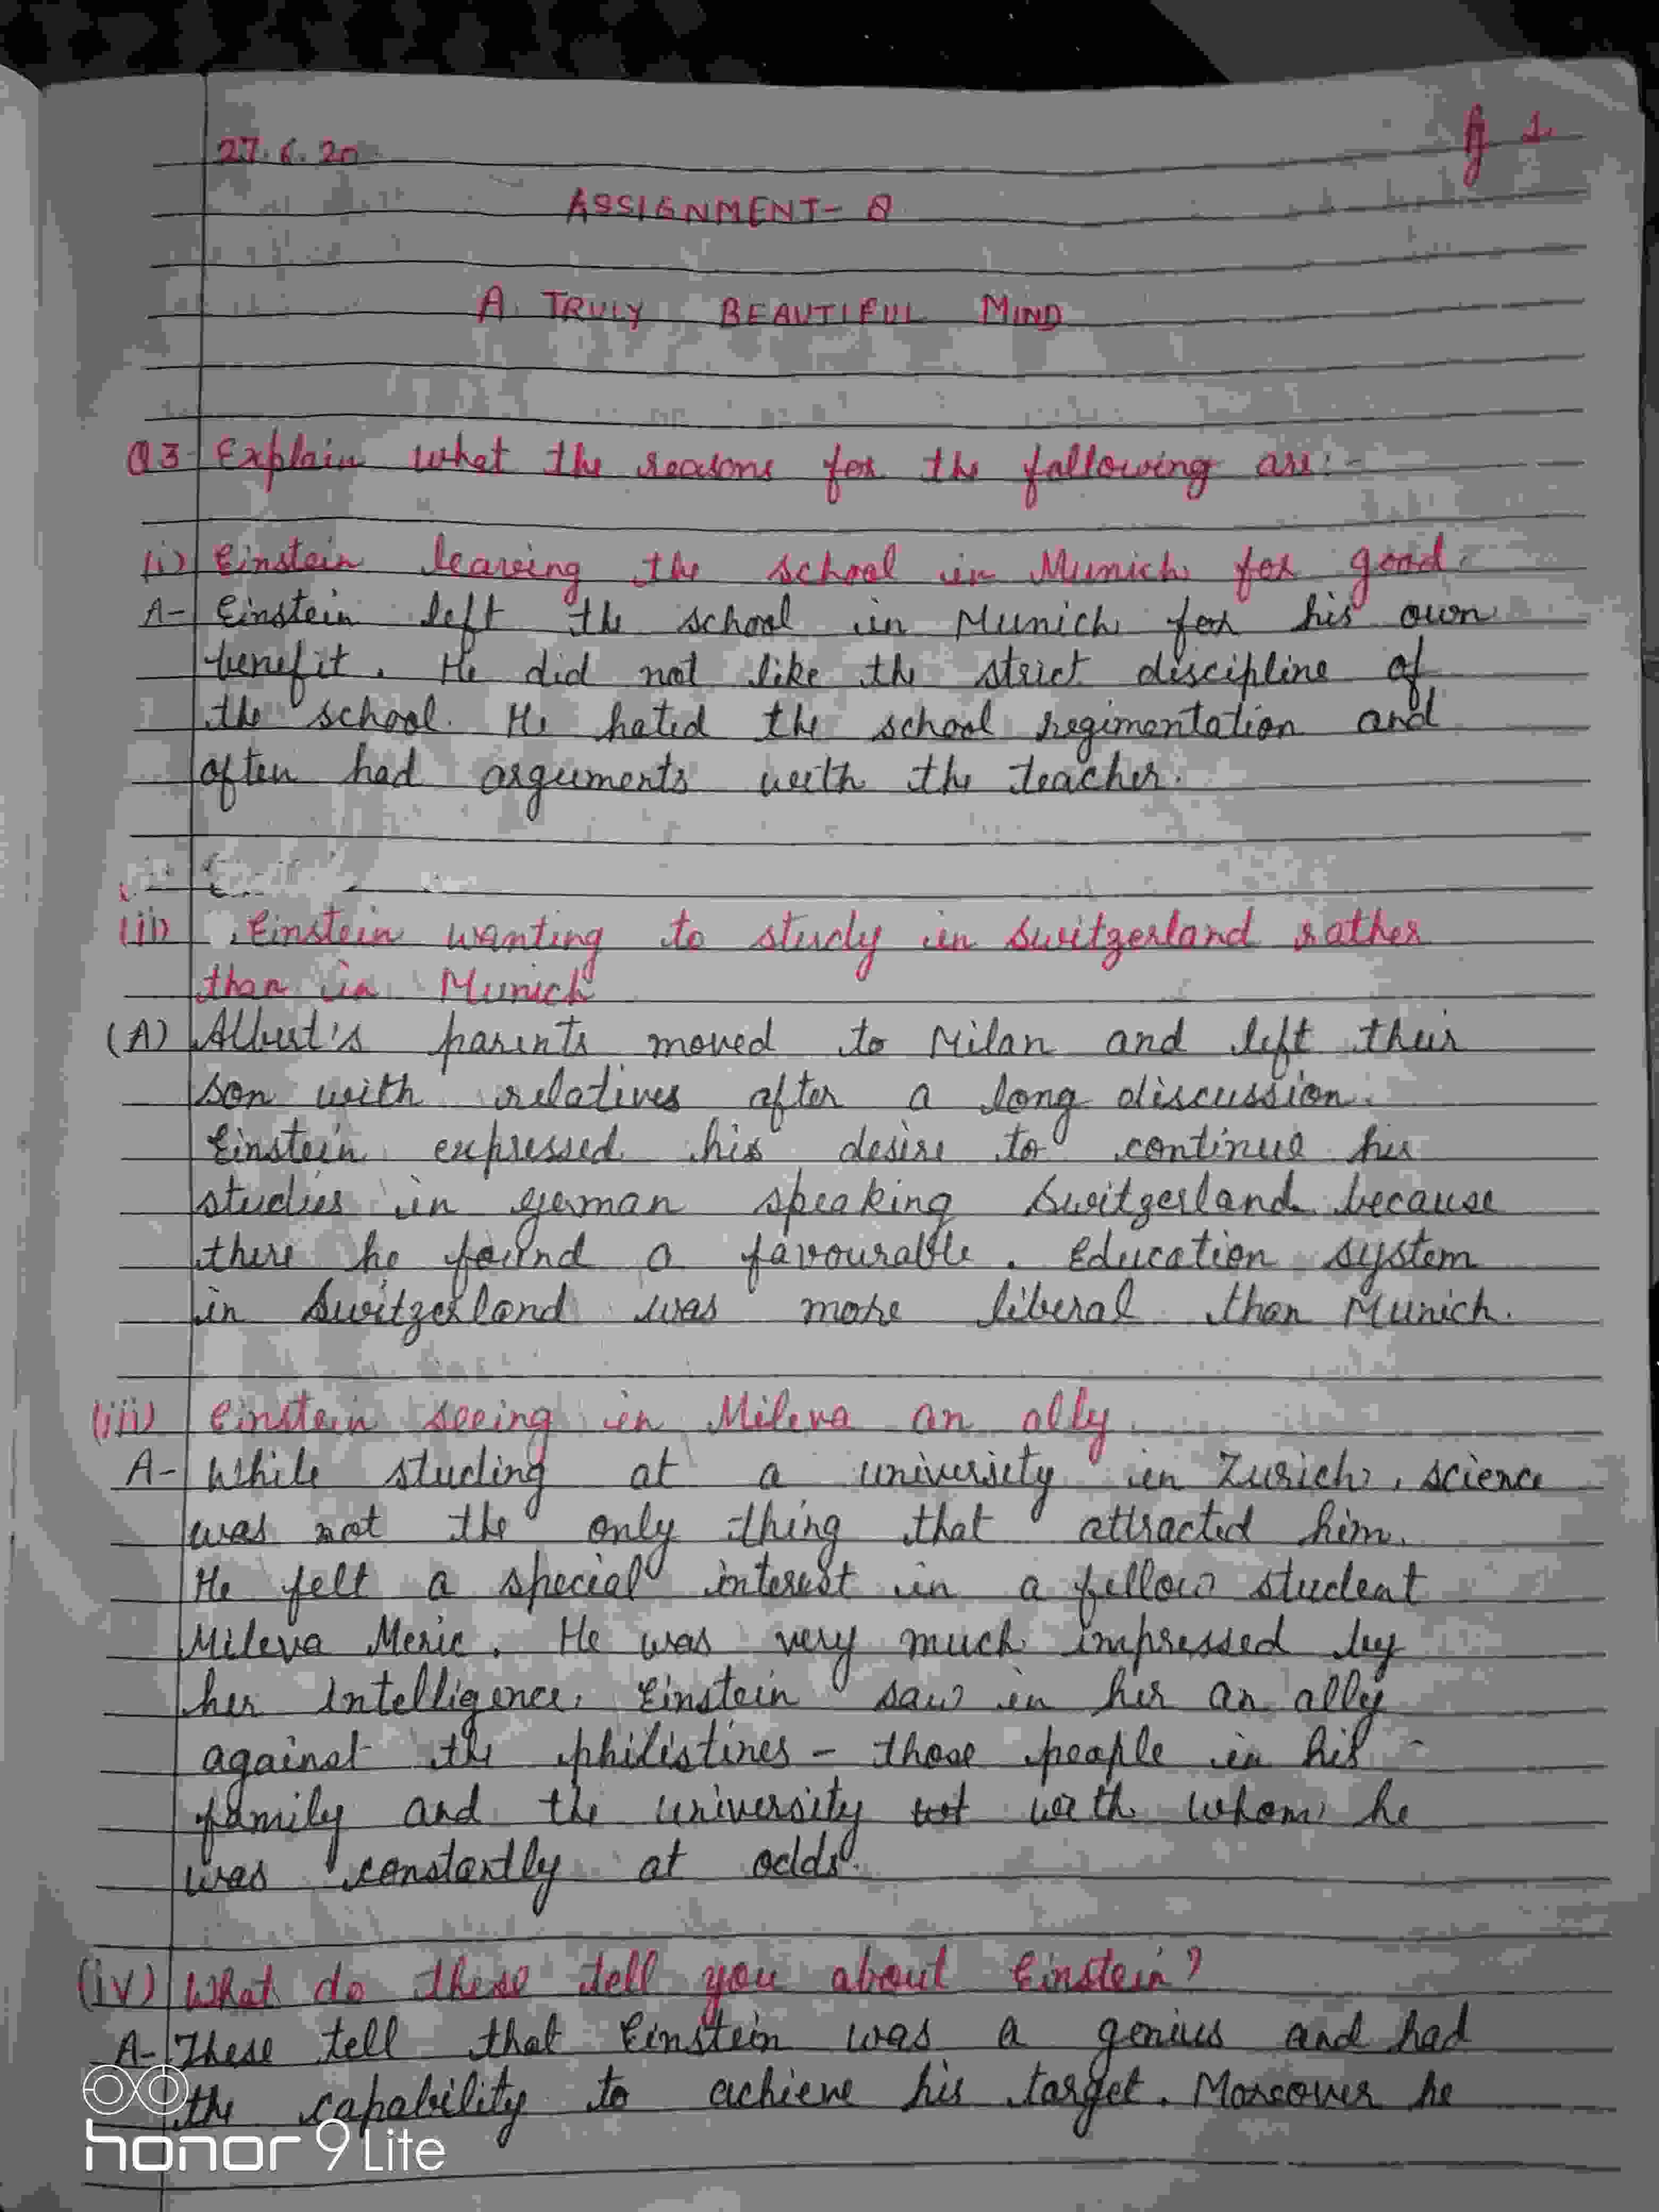 27.6.20
1.
ASSIGNMENT- 8
A TRULY BEAUTIFUL MIND
Q3 Explain what the reasons for the following are:-
(i) Einstein leaving the school in Munich for good.
A- Einstein left the school in Munich for his own
benefit. He did not like the strict discipline of
the school. He hated the school regimentation and
often had arguments with the teacher.
(ii) Einstein wanting to study in Switzerland rather
than in Munich
(A) Albert's parents moved to Milan and left their
son with relatives after a long discussion.
Einstein expressed his desire to continue his
studies in german speaking Switzerland because
there he found a favourable. Education system
in Switzerland was more liberal than Munich.
(iii) Einstein seeing in Mileva an ally.
A- While studing at a university in Zurich, science
was not the only thing that attracted him.
He felt a special interest in a fellow student
Mileva Meric. He was very much impressed by
her Intelligence. Einstein saw in her an ally
against the philistines - those people in his
family and the university with whom he
was constantly at odds.
(iv) What do these tell you about Einstein?
A- These tell that Einstein was a genius and had
the capability to achieve his target. Moreover he
honor 9 Lite